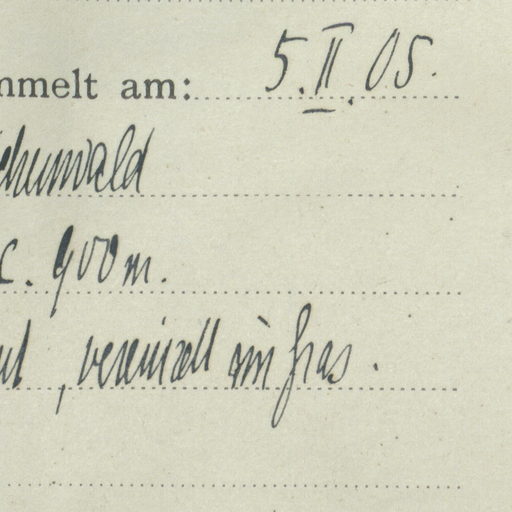 mmelt am: 5.II.05.
chenwald
c. 900 m.
, vereinzelt im Gras.